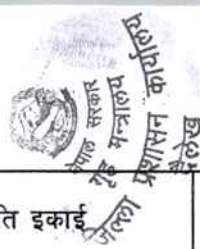 नेपाल सरकार
गृह मन्त्रालय
जिल्ला प्रशासन कार्यालय
ति इकाई